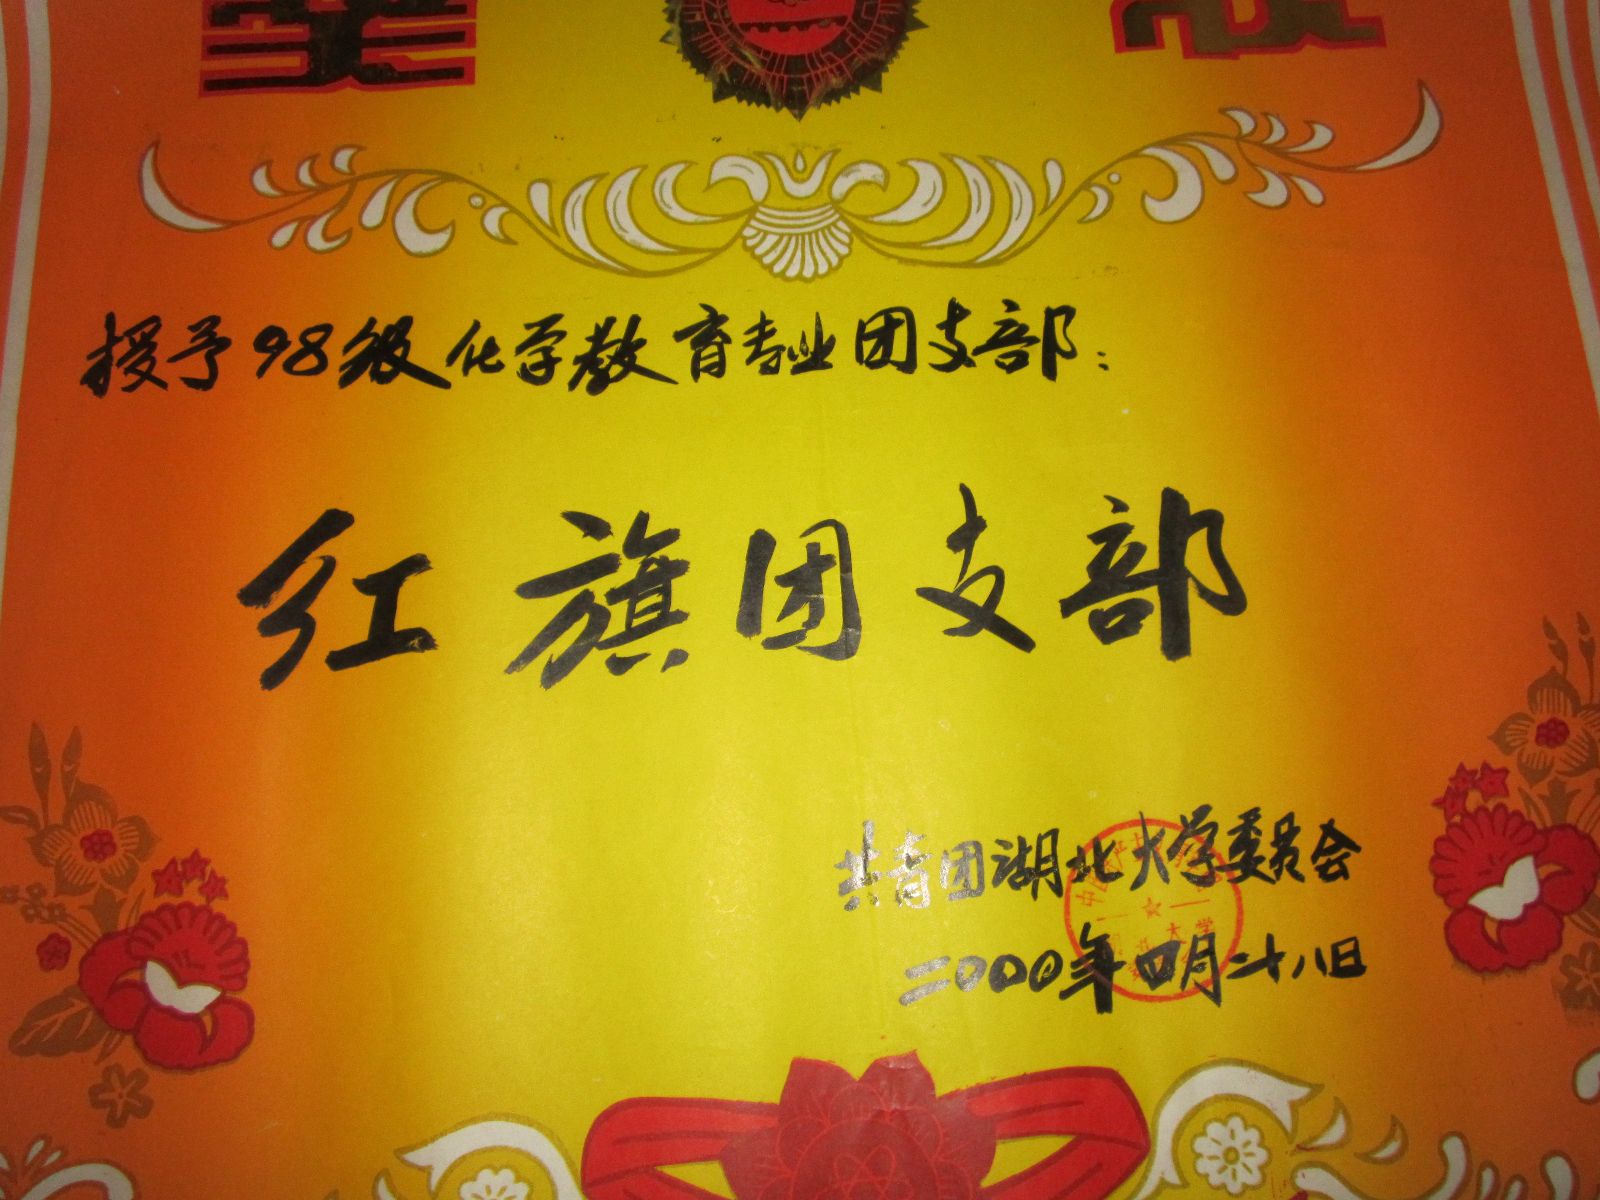 奖 状
授予98级化学教育专业团支部:
红旗团支部
共青团湖北大学委员会
二000年四月二十八日